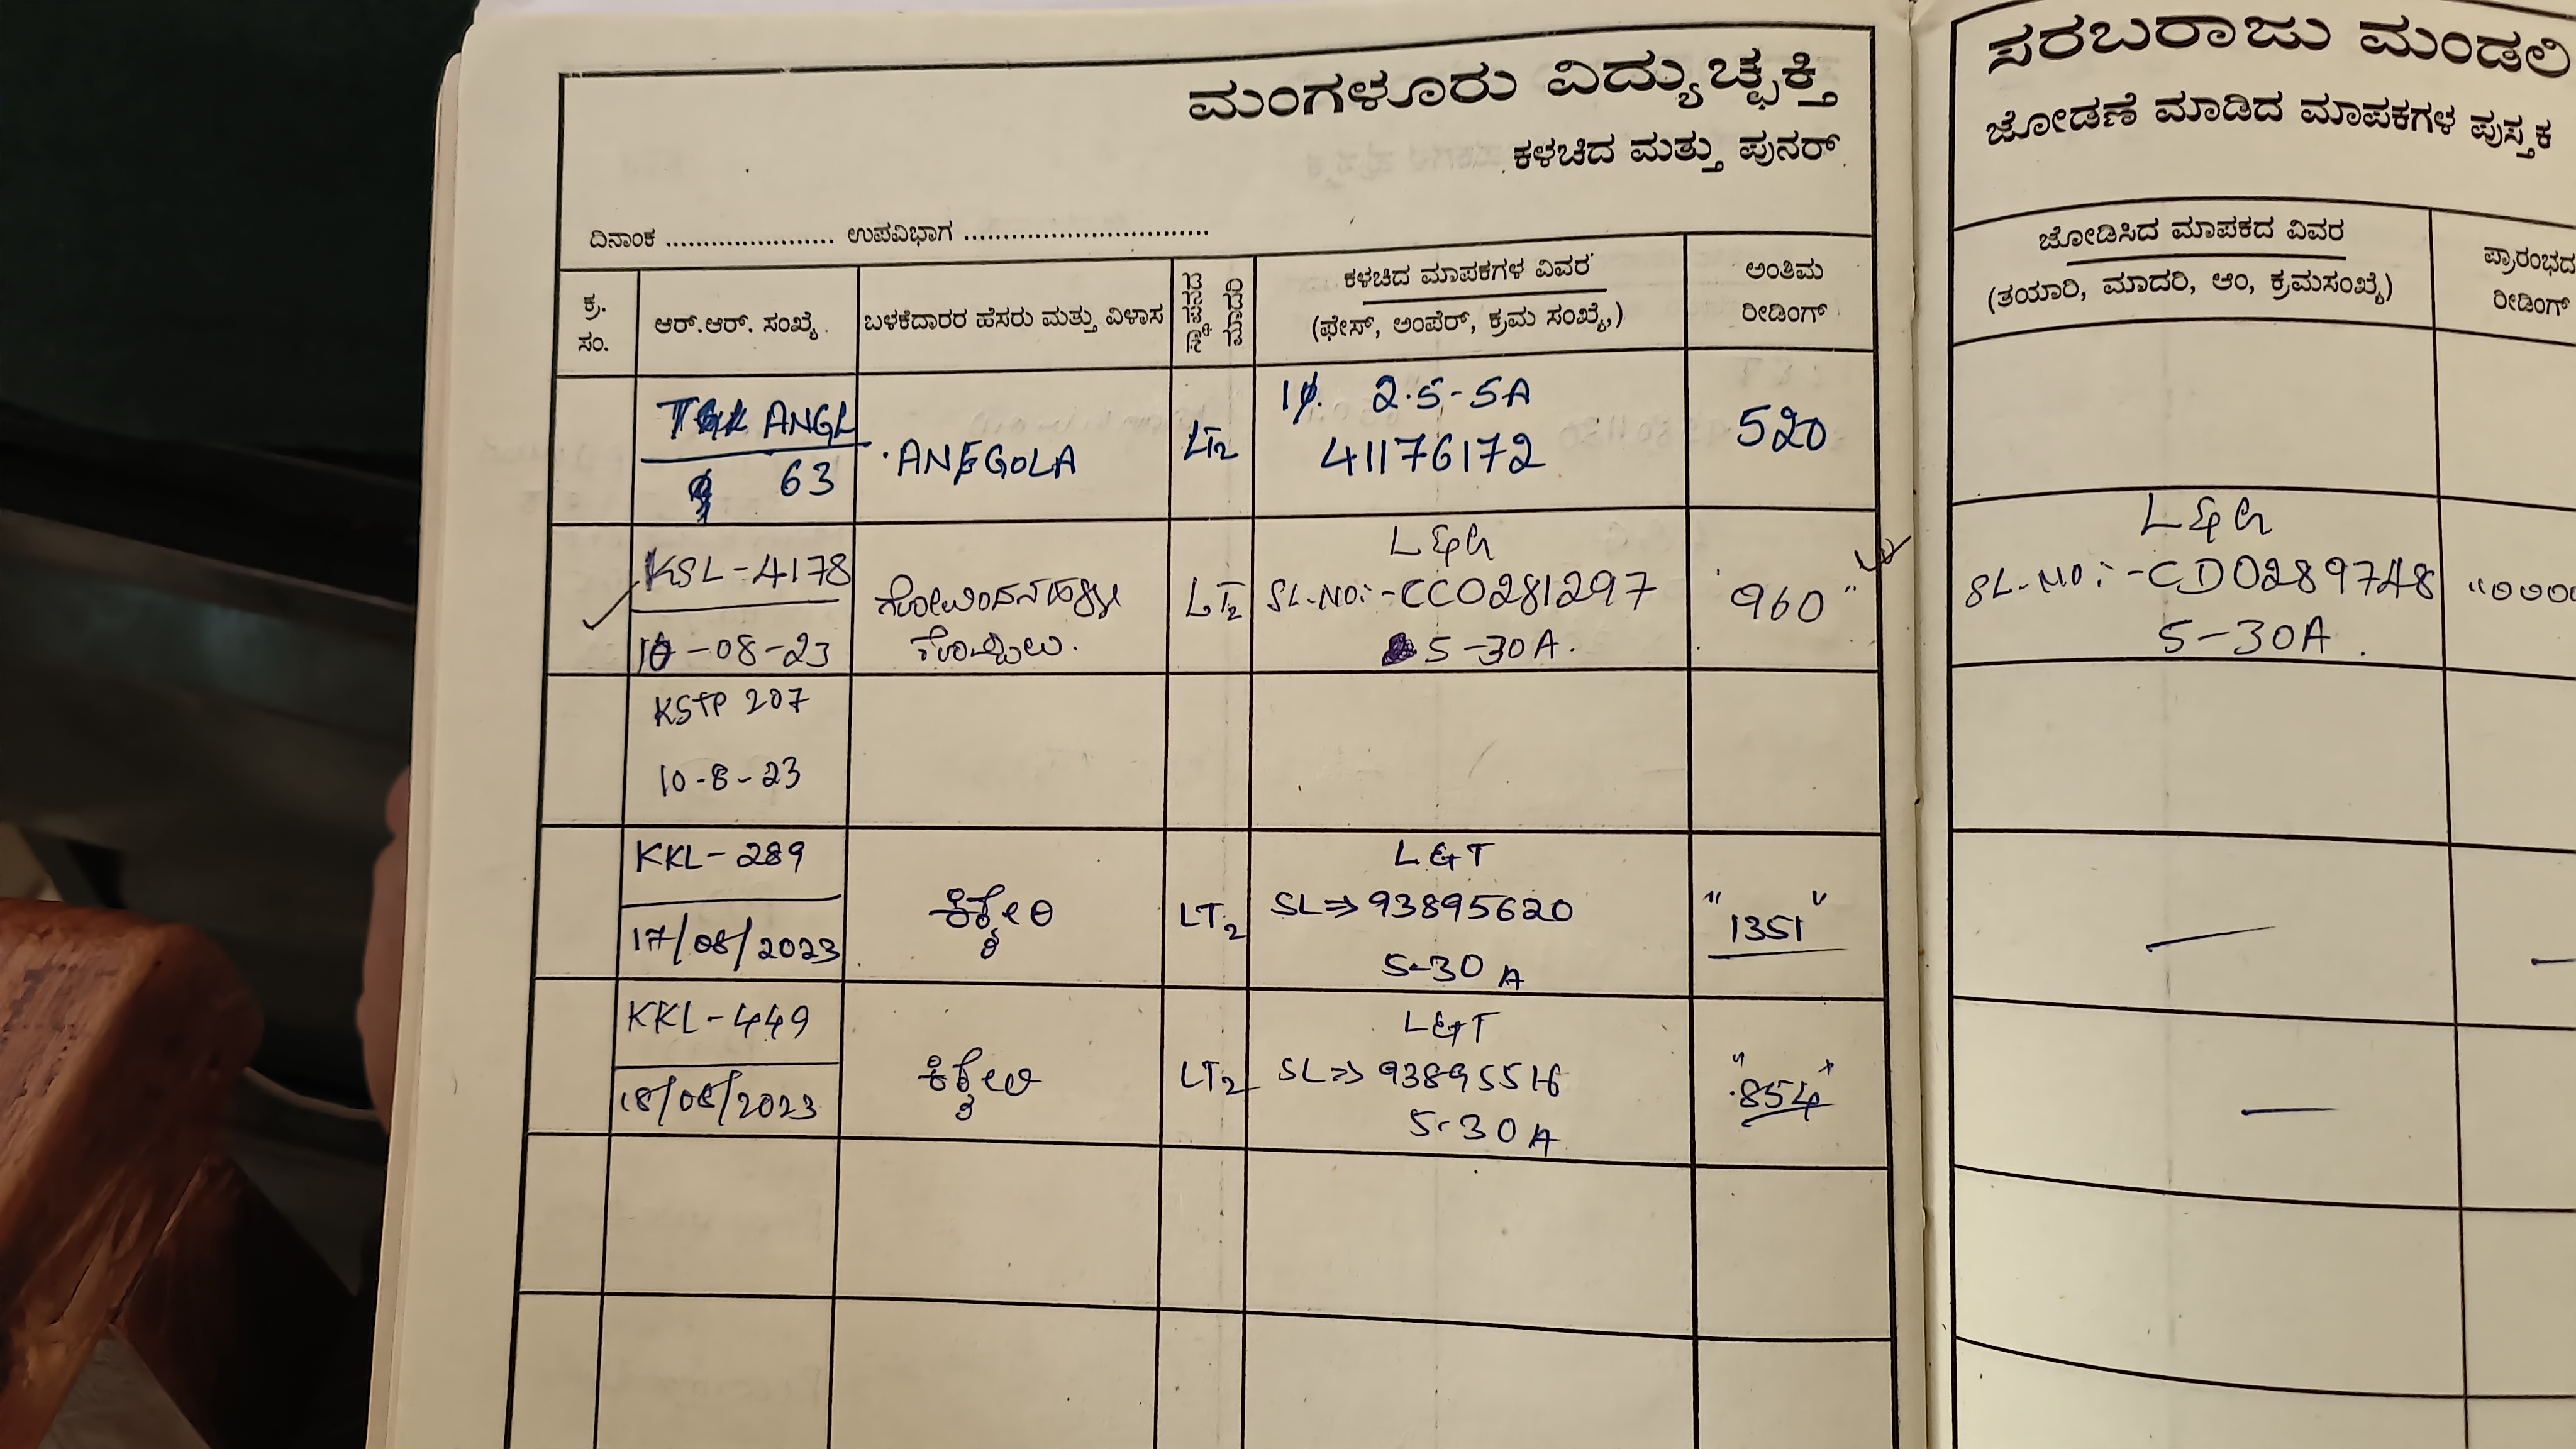 ಮಂಗಳೂರು ವಿದ್ಯುಚ್ಛಕ್ತಿ
ಕಳಚಿದ ಮತ್ತು ಪುನರ್
ದಿನಾಂಕ ...................... ಉಪವಿಭಾಗ ................................
ಕ್ರ. ಸಂ.
ಆರ್.ಆರ್. ಸಂಖ್ಯೆ
ಬಳಕೆದಾರರ ಹೆಸರು ಮತ್ತು ವಿಳಾಸ
ಸ್ಥಾಪನದ ಮಾದರಿ
ಕಳಚಿದ ಮಾಪಕಗಳ ವಿವರ
(ಫೇಸ್, ಅಂಪೆರ್, ಕ್ರಮ ಸಂಖ್ಯೆ,)
ಅಂತಿಮ
ರೀಡಿಂಗ್
ANGL
63
LT2
1φ. 2.5-5A
41176172
520
KSL-4178
10-08-23
LT2
L&G
SL.NO:-CC0281297
5-30A.
"960"
KSTP 207
10-8-23
KKL-289
17/08/2023
ಕಿಕ್ಕೇರಿ
LT2
L&T
SL⇒93895620
5-30A
"1351"
KKL-449
18/08/2023
ಕಿಕ್ಕೇರಿ
LT2
L&T
SL⇒93895516
5-30A
"854"
ಸರಬರಾಜು ಮಂಡಲಿ
ಜೋಡಣೆ ಮಾಡಿದ ಮಾಪಕಗಳ ಪುಸ್ತಕ
ಜೋಡಿಸಿದ ಮಾಪಕದ ವಿವರ
(ತಯಾರಿ, ಮಾದರಿ, ಆಂ, ಕ್ರಮಸಂಖ್ಯೆ)
ಪ್ರಾರಂಭದ
ರೀಡಿಂಗ್
L&G
SL.NO:-CD0289748
5-30A.